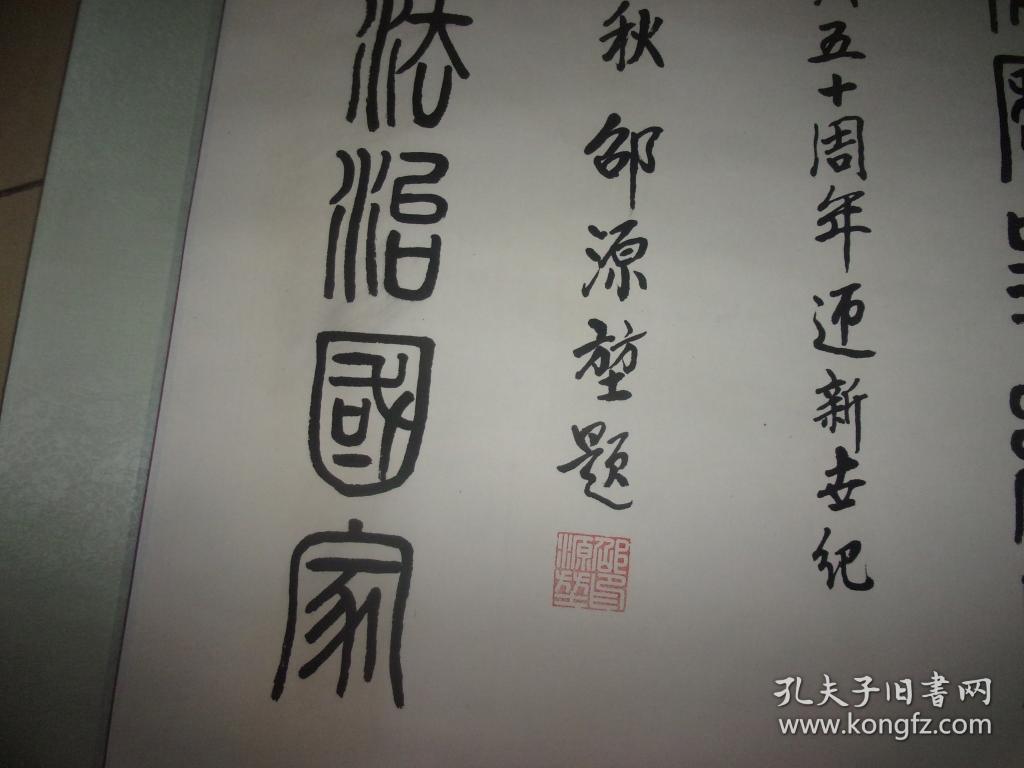 五十周年迎新世紀
秋邵源堃题
法治國家
邵印源堃
孔夫子旧書网
www.kongfz.com